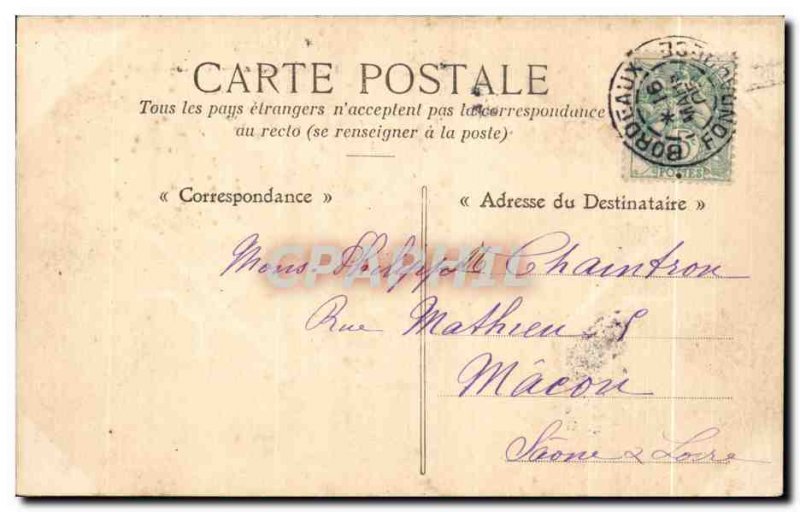 CARTE POSTALE
Tous les pays étrangers n'acceptent pas la correspondance
au recto (se renseigner à la poste)
« Correspondance »
« Adresse du Destinataire »
Mons. Philippe Chaintron
Rue Mathieu 5
Mâcon
Saône & Loire
BORDEAUX
16 MAI
5c
POSTES
CPAPHIL